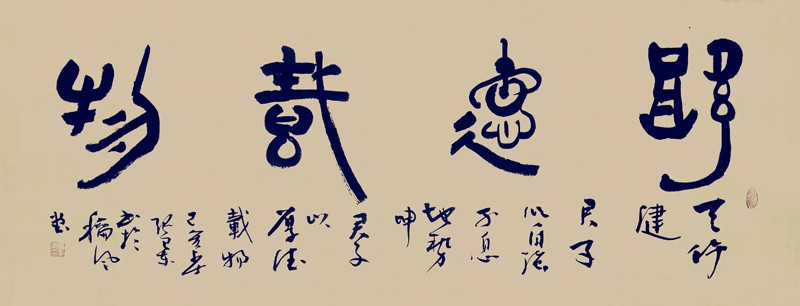 厚德載物
天行
健
君子
以自強
不息
地勢
坤
君子
以
厚德
載物
己亥
書於
風
堂